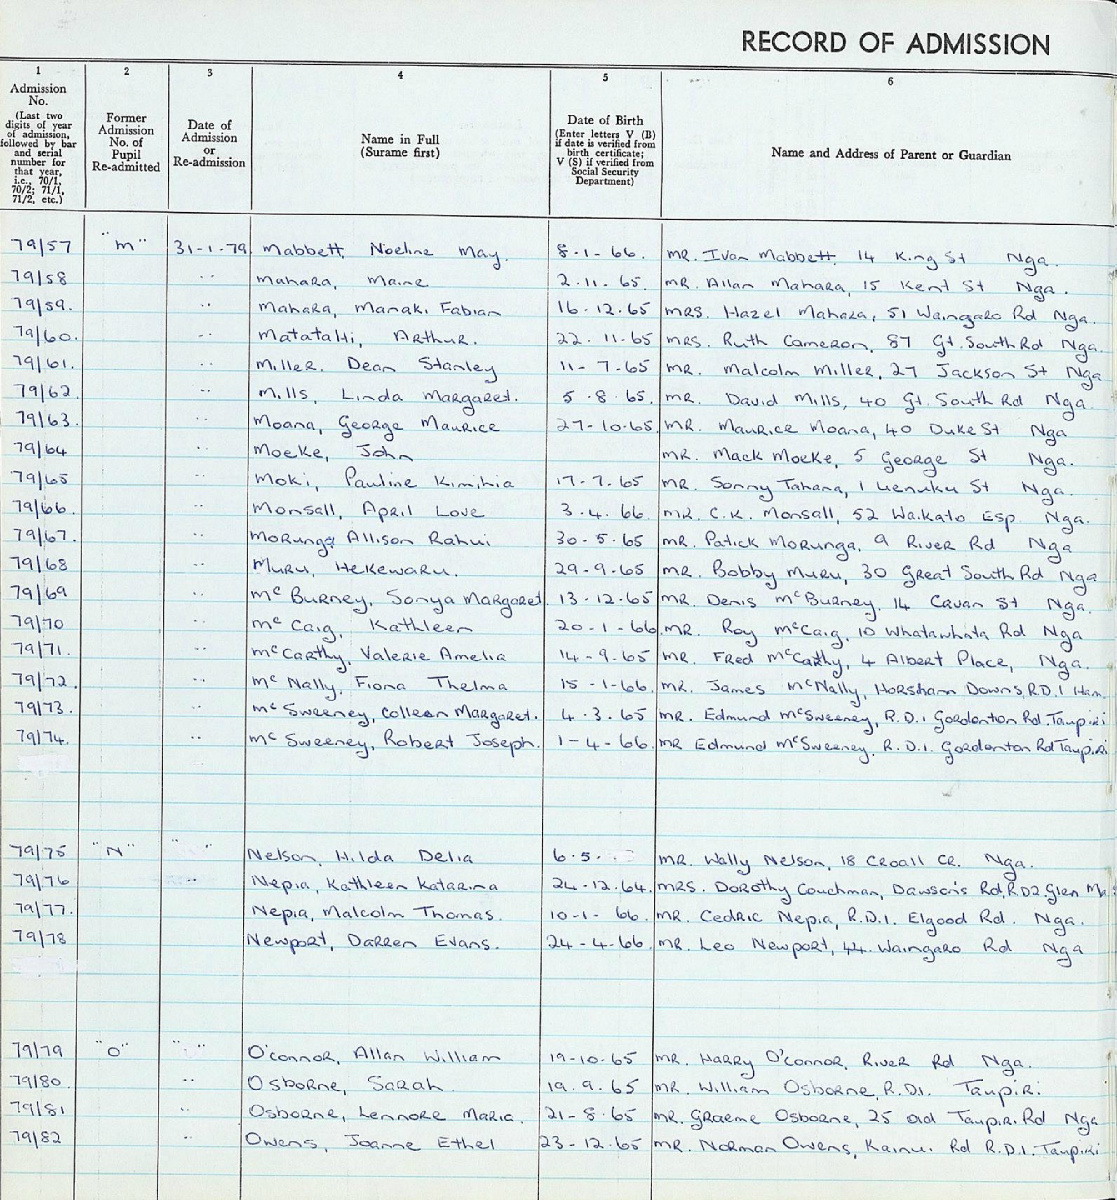 RECORD OF ADMISSION
1 2 3 4 5 6
Admission No. (Last two digits of year of admission, followed by bar and serial number for that year, i.e., 70/1, 70/2; 71/1, 71/2, etc.)
Former Admission No. of Pupil Re-admitted
Date of Admission or Re-admission
Name in Full (Surame first)
Date of Birth (Enter letters V (B) if date is verified from birth certificate; V (S) if verified from Social Security Department)
Name and Address of Parent or Guardian
79/57 "M" 31-1-79 Mabbett, Noeline May. 8-1-66. MR. Ivan Mabbett, 14 King St Nga.
79/58 " Mahara, Marie 2.11.65. MR. Allan Mahara, 15 Kent St Nga.
79/59. " Mahara, Manaki Fabian 16.12.65 MRS. Hazel Mahara, 51 Waingaro Rd Nga.
79/60. " Matatahi, Arthur. 22.11.65 MRS. Ruth Cameron, 87 Gt. South Rd Nga.
79/61. " Miller, Dean Stanley 11-7-65 MR. Malcolm Miller, 27 Jackson St Nga
79/62. " Mills, Linda Margaret. 5.8.65. MR. David Mills, 40 Gt. South Rd Nga.
79/63 " Moana, George Maurice 27-10-65. MR. Maurice Moana, 40 Duke St Nga
79/64 " Moeke, John MR. Mack Moeke, 5 George St Nga.
79/65 " Moki, Pauline Kimihia 17-7.65 MR. Sonny Tahana, 1 Uenuku St Nga.
79/66. " Monsall, April Love 3.4.66. MR. C.K. Monsall, 52 Waikato Esp Nga.
79/67. " Morunga Allison Rahui 30-5-65 MR. Patick Morunga, 9 River Rd Nga
79/68 " Muru, Hekewaru. 29-9-65 MR. Bobby Muru, 30 Great South Rd Nga
79/69 " McBurney, Sonya Margaret 13-12-65 MR. Denis McBurney, 14 Cavan St Nga.
79/70 " McCaig, Kathleen 20-1-66 MR. Roy McCaig, 10 Whatawhata Rd Nga
79/71. " McCarthy, Valerie Amelia 14-9.65 MR. Fred McCarthy, 4 Albert Place, Nga.
79/72. " McNally, Fiona Thelma 15-1-66. MR. James McNally, Horsham Downs, R.D.1 Ham.
79/73. " McSweeney, Colleen Margaret. 4.3.65 MR. Edmund McSweeney, R.D.1 Gordonton Rd. Taupiri
79/74. " McSweeney, Robert Joseph. 1-4-66. MR Edmund McSweeney. R.D.1. Gordonton Rd Taupiri
79/75 "N" " Nelson, Hilda Delia 6.5. MR. Wally Nelson, 18 Croall Cr. Nga.
79/76 " Nepia, Kathleen Katarina 24-12.64. MRS. Dorothy Couchman, Dawson's Rd, R.D2 Glen
79/77. " Nepia, Malcolm Thomas. 10-1-66. MR. Cedric Nepia, R.D.1. Elgood Rd. Nga.
79/78 Newport, Darren Evans. 24-4-66. MR. Leo Newport, 44 Waingaro Rd Nga
79/79 "O" " O'Connor, Allan William 19-10-65 MR. Harry O'Connor, River Rd Nga.
79/80. " Osborne, Sarah. 19.9.65 MR. William Osborne, R.D.1. Taupiri.
79/81 " Osborne, Lennore Maria. 21-8.65 MR. Graeme Osborne, 25 Old Taupiri Rd Nga
79/82 " Owens, Joanne Ethel 23-12.65 MR. Norman Owens, Kainui Rd R.D.1. Taupiri